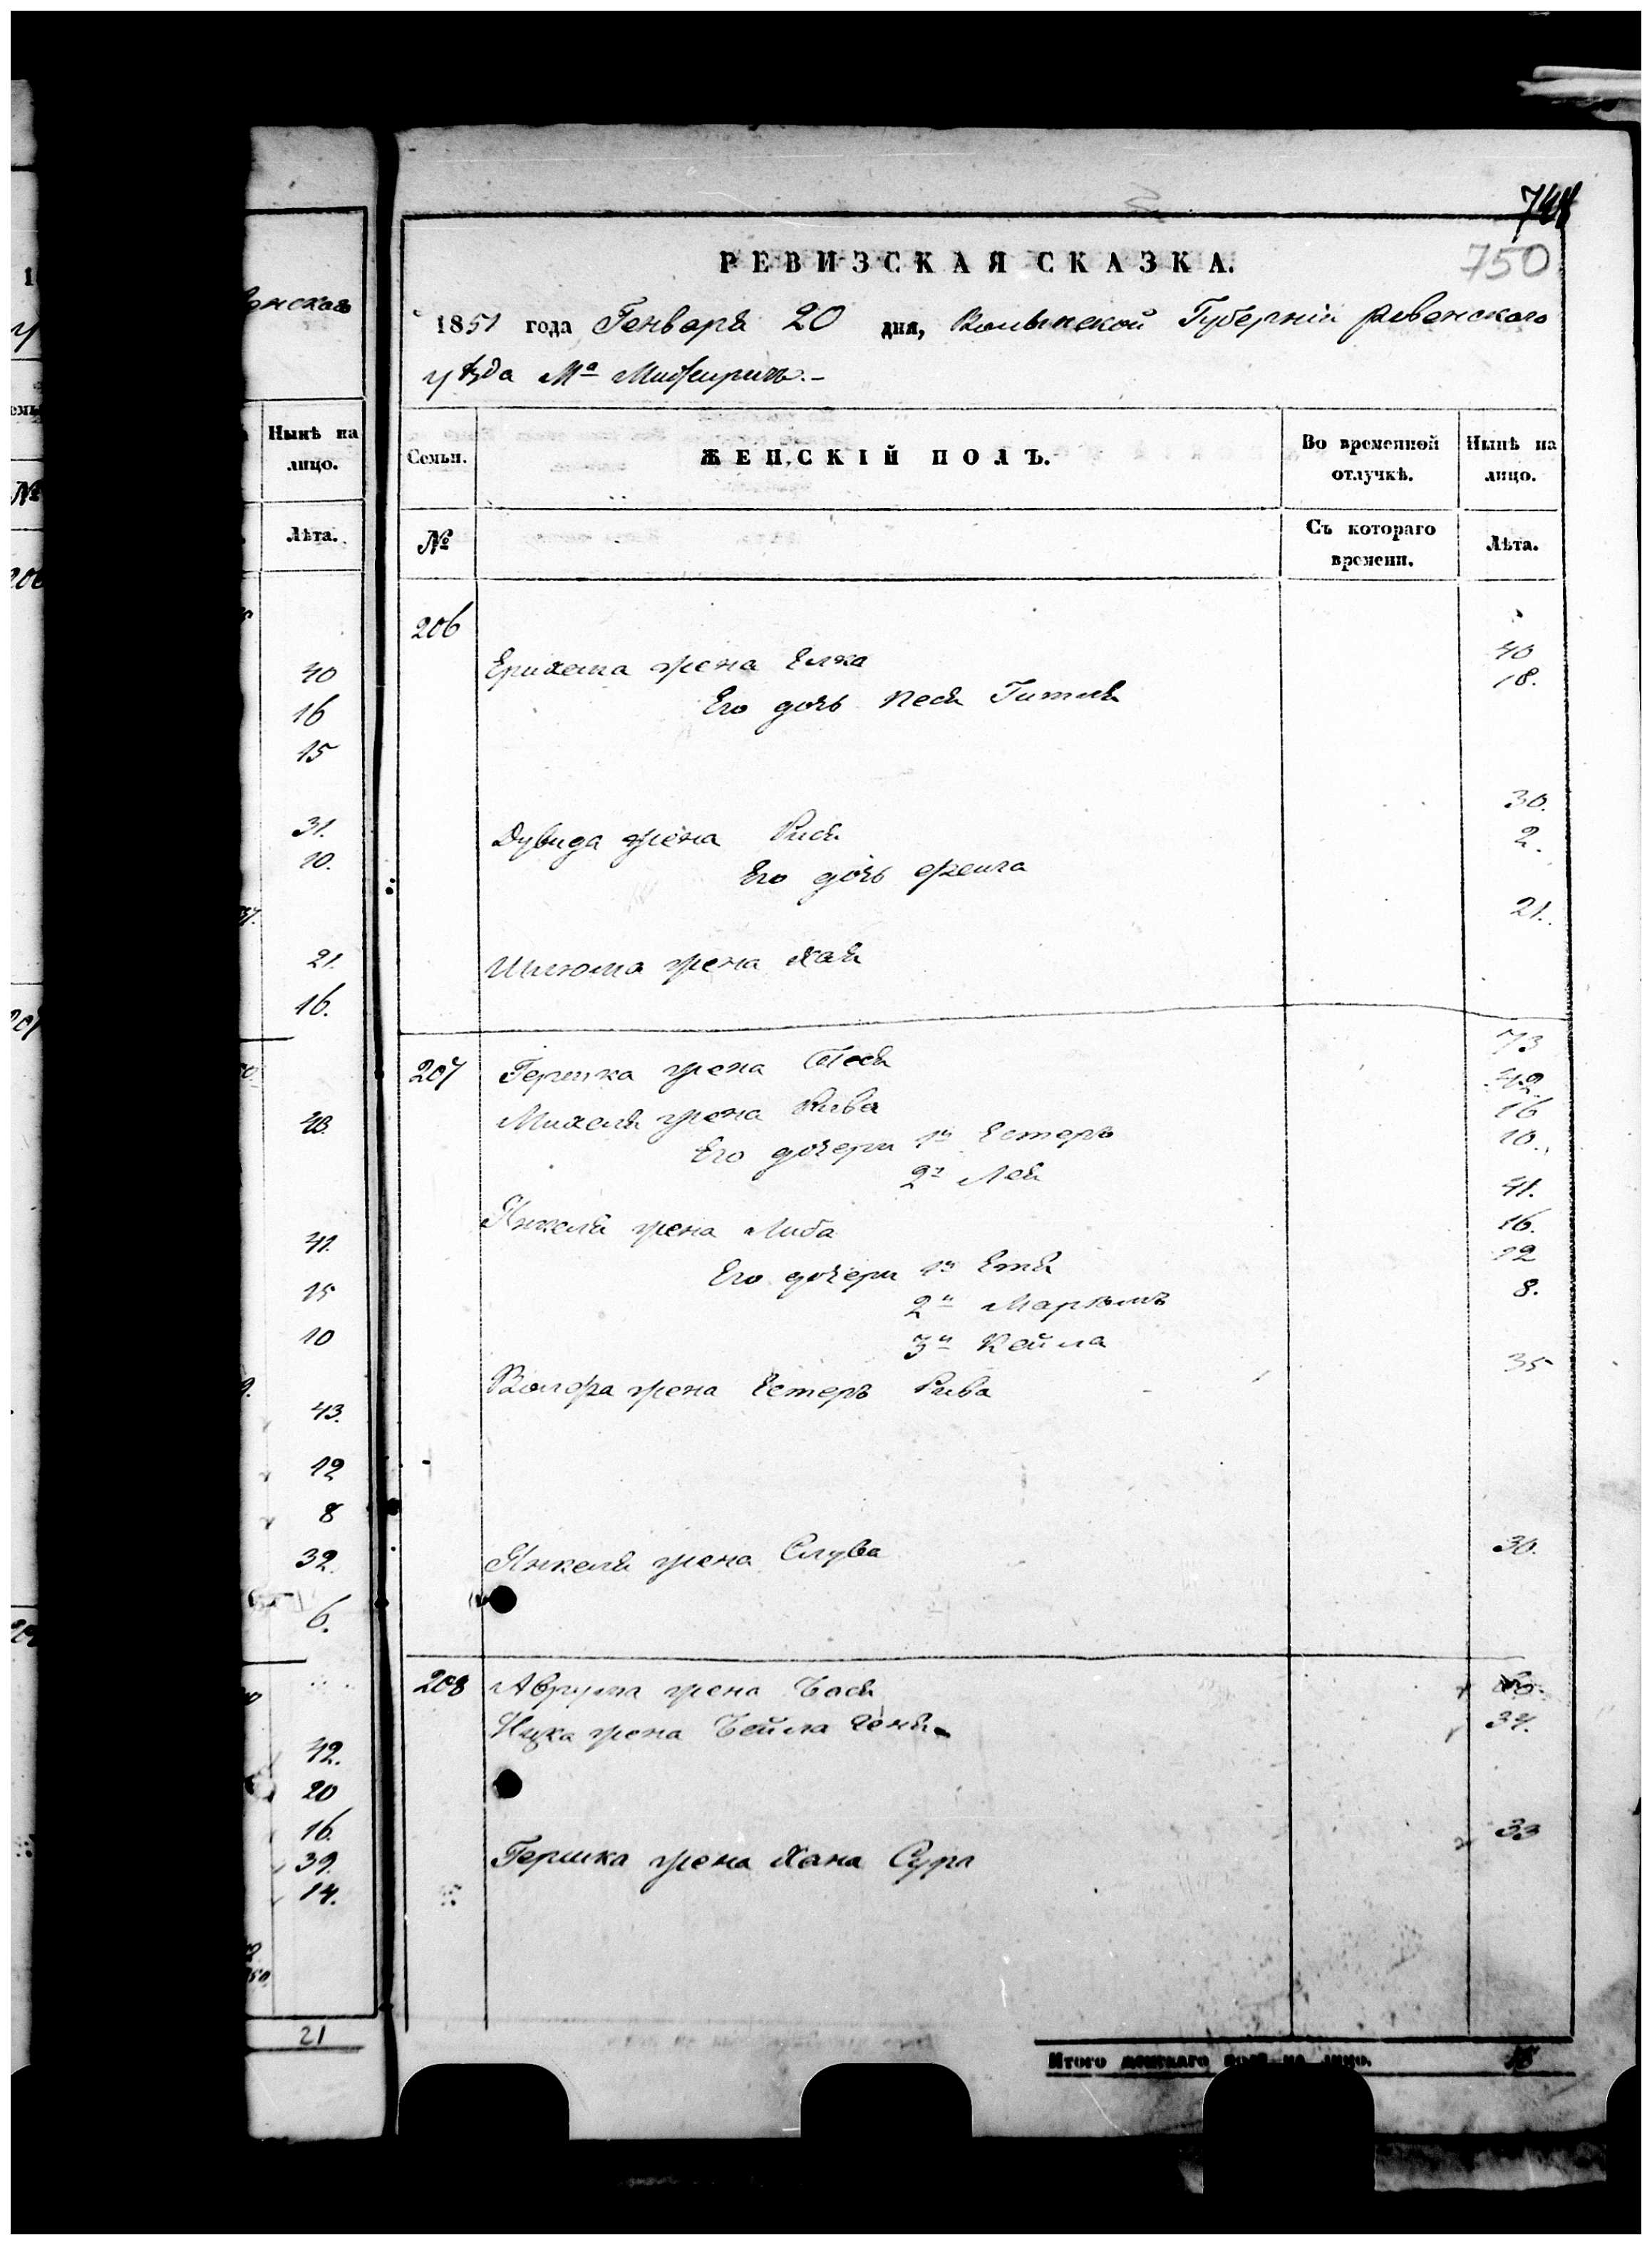 744
750
РЕВИЗСКАЯ СКАЗКА.
1851 года Генваря 20 дня, Волынской Губерніи Ровенского
уѣзда Мª Межиричъ.-
Семьи. ЖЕНСКІЙ ПОЛЪ. Во временной отлучкѣ. Нынѣ на лицо.
№ Съ котораго времени. Лѣта.
206
Ерихема жена Елка 40
Его дочь Песя Гитля 18.
Дувида жена Рися 30.
Его дочь Фейга 2.
Шлюма жена Хая 21.
207 Гершка жена Песя 73
Михеля жена Рива 42
Его дочери 1я Естеръ 16
2я Лея 10.
Янкеля жена Либа 41.
Его дочери 1я Етя 16.
2я Марьямъ 12
3я Кейла 8.
Волфа жена Естеръ Рива 35
Янкеля жена Слува 30.
208 Аврума жена Бася
Ицка жена Бейла Геня 34.
Гершка жена Хана Сура 33
Итого женскаго пола на лицо. 15
нская
Нынѣ на лицо.
Лѣта.
40
16
15
31.
10.
21.
16.
43.
41.
15
10
43.
12
8
32.
6.
42.
20
16.
39.
14.
21
№